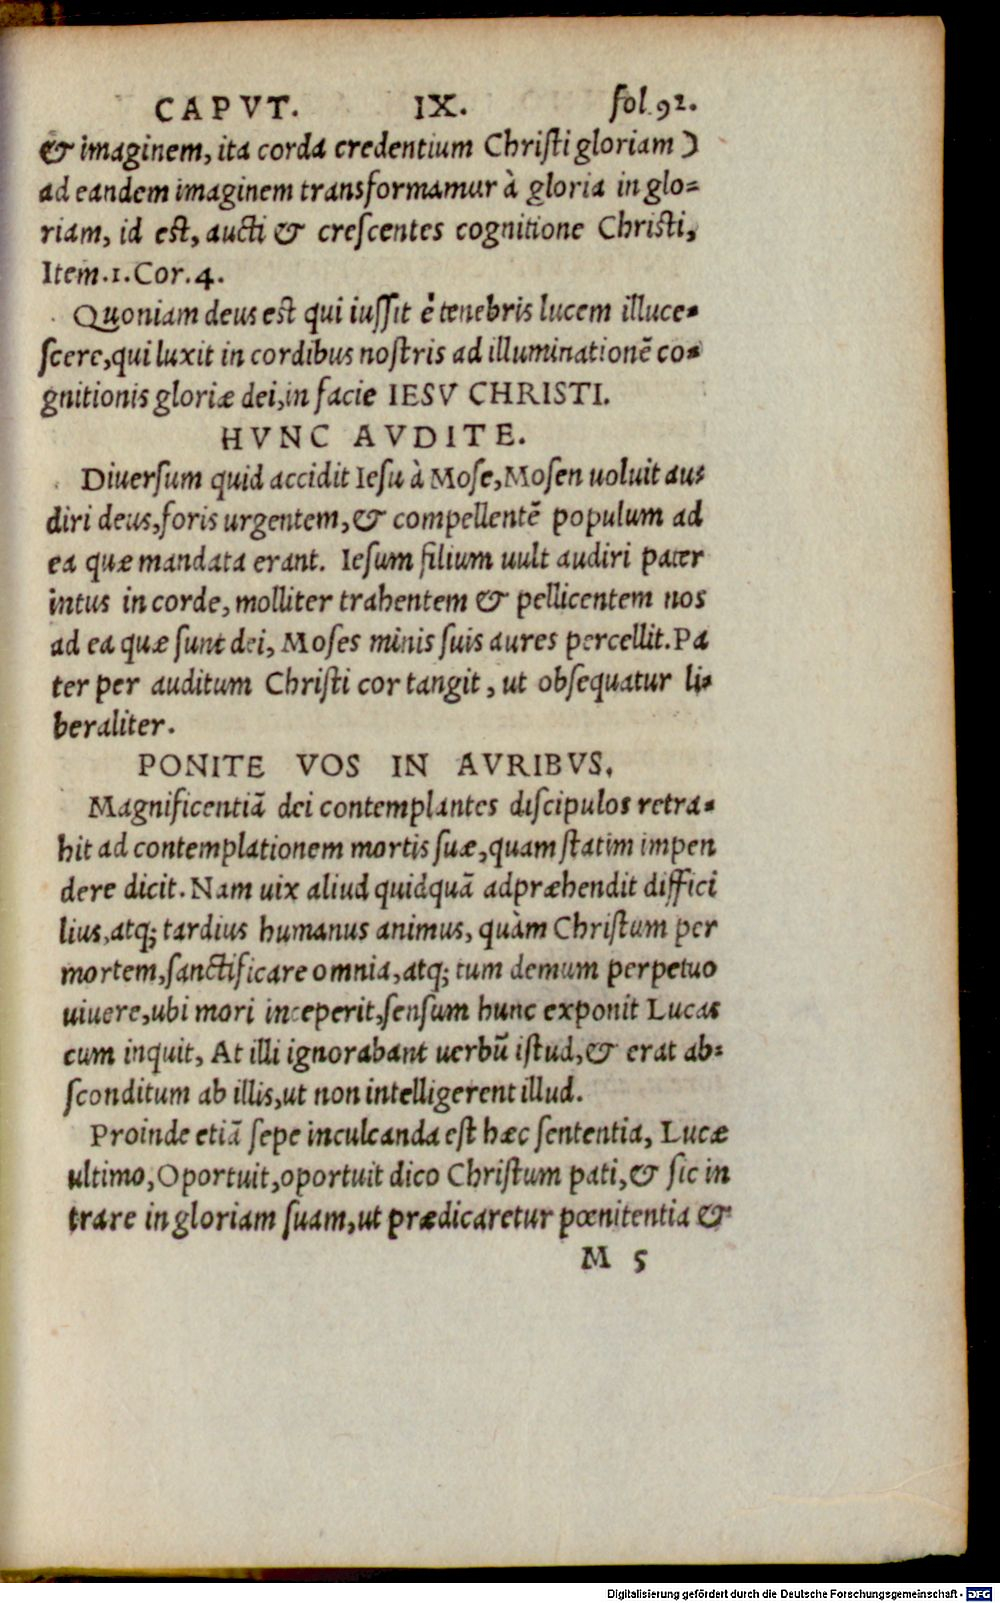 CAPVT. IX. fol.92.
& imaginem, ita corda credentium Christi gloriam)
ad eandem imaginem transformamur à gloria in glo=
riam, id est, aucti & crescentes cognitione Christi,
Item.1.Cor.4.
Quoniam deus est qui iussit è tenebris lucem illuce=
scere, qui luxit in cordibus nostris ad illuminationē co=
gnitionis gloriæ dei, in facie IESV CHRISTI.
HVNC AVDITE.
Diuersum quid accidit Iesu à Mose, Mosen uoluit au=
diri deus, foris urgentem, & compellentē populum ad
ea quæ mandata erant. Iesum filium uult audiri pater
intus in corde, molliter trahentem & pellicentem nos
ad ea quæ sunt dei, Moses minis suis aures percellit. Pa
ter per auditum Christi cor tangit, ut obsequatur li=
beraliter.
PONITE VOS IN AVRIBVS.
Magnificentiā dei contemplantes discipulos retra=
hit ad contemplationem mortis suæ, quam statim impen
dere dicit. Nam uix aliud quidquā adpræhendit diffici
lius, atq; tardius humanus animus, quàm Christum per
mortem, sanctificare omnia, atq; tum demum perpetuo
uiuere, ubi mori inceperit, sensum hunc exponit Lucas
cum inquit, At illi ignorabant uerbū istud, & erat ab=
sconditum ab illis, ut non intelligerent illud.
Proinde etiā sepe inculcanda est hæc sententia, Lucæ
ultimo, Oportuit, oportuit dico Christum pati, & sic in
trare in gloriam suam, ut prædicaretur pœnitentia &
M 5
Digitalisierung gefördert durch die Deutsche Forschungsgemeinschaft - DFG